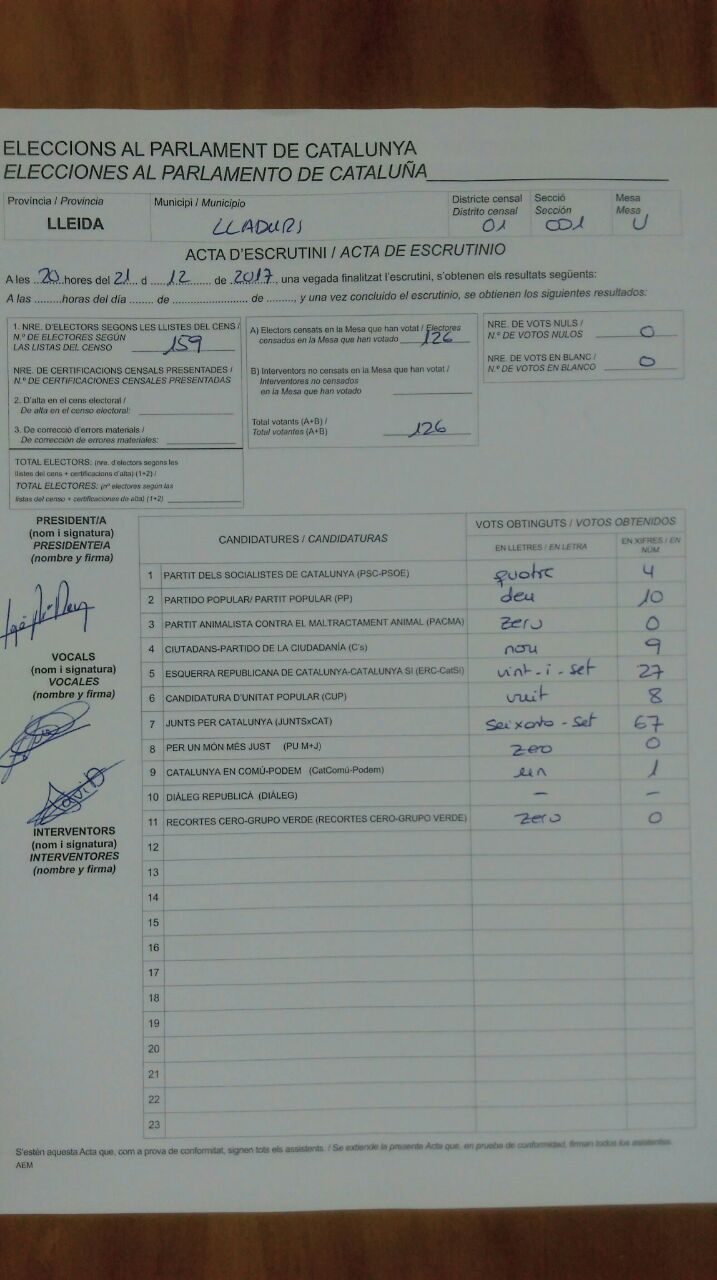 ELECCIONS AL PARLAMENT DE CATALUNYA
ELECCIONES AL PARLAMENTO DE CATALUÑA
Província / Provincia
LLEIDA
Municipi / Municipio
LLADURS
Districte censal
Distrito censal
01
Secció
Sección
001
Mesa
Mesa
U
ACTA D'ESCRUTINI / ACTA DE ESCRUTINIO
A les 20 hores del 21 d 12 de 2017, una vegada finalitzat l'escrutini, s'obtenen els resultats següents:
A las .........horas del día ....... de ........................ de ........, y una vez concluido el escrutinio, se obtienen los siguientes resultados:
1. NRE. D'ELECTORS SEGONS LES LLISTES DEL CENS /
N.º DE ELECTORES SEGÚN
LAS LISTAS DEL CENSO 159
NRE. DE CERTIFICACIONS CENSALS PRESENTADES /
N.º DE CERTIFICACIONES CENSALES PRESENTADAS
2. D'alta en el cens electoral /
De alta en el censo electoral:
3. De correcció d'errors materials /
De corrección de errores materiales:
TOTAL ELECTORS: (nre. d'electors segons les
llistes del cens + certificacions d'alta) (1+2) /
TOTAL ELECTORES: (nº electores según las
listas del censo + certificaciones de alta) (1+2)
A) Electors censats en la Mesa que han votat / Electores
censados en la Mesa que han votado 126
B) Interventors no censats en la Mesa que han votat /
Interventores no censados
en la Mesa que han votado
Total votants (A+B) /
Total votantes (A+B) 126
NRE. DE VOTS NULS /
N.º DE VOTOS NULOS 0
NRE. DE VOTS EN BLANC /
N.º DE VOTOS EN BLANCO 0
PRESIDENT/A
(nom i signatura)
PRESIDENTE/A
(nombre y firma)
VOCALS
(nom i signatura)
VOCALES
(nombre y firma)
INTERVENTORS
(nom i signatura)
INTERVENTORES
(nombre y firma)
CANDIDATURES / CANDIDATURAS
VOTS OBTINGUTS / VOTOS OBTENIDOS
EN LLETRES / EN LETRA
EN XIFRES / EN NÚM
1 PARTIT DELS SOCIALISTES DE CATALUNYA (PSC-PSOE) quatre 4
2 PARTIDO POPULAR/ PARTIT POPULAR (PP) deu 10
3 PARTIT ANIMALISTA CONTRA EL MALTRACTAMENT ANIMAL (PACMA) zero 0
4 CIUTADANS-PARTIDO DE LA CIUDADANÍA (C's) nou 9
5 ESQUERRA REPUBLICANA DE CATALUNYA-CATALUNYA SÍ (ERC-CatSí) vint-i-set 27
6 CANDIDATURA D'UNITAT POPULAR (CUP) vuit 8
7 JUNTS PER CATALUNYA (JUNTSxCAT) seixanta-set 67
8 PER UN MÓN MÉS JUST (PU M+J) zero 0
9 CATALUNYA EN COMÚ-PODEM (CatComú-Podem) un 1
10 DIÀLEG REPUBLICÀ (DIÀLEG) - -
11 RECORTES CERO-GRUPO VERDE (RECORTES CERO-GRUPO VERDE) zero 0
12
13
14
15
16
17
18
19
20
21
22
23
S'estén aquesta Acta que, com a prova de conformitat, signen tots els assistents. / Se extiende la presente Acta que, en prueba de conformidad, firman todos los asistentes.
AEM